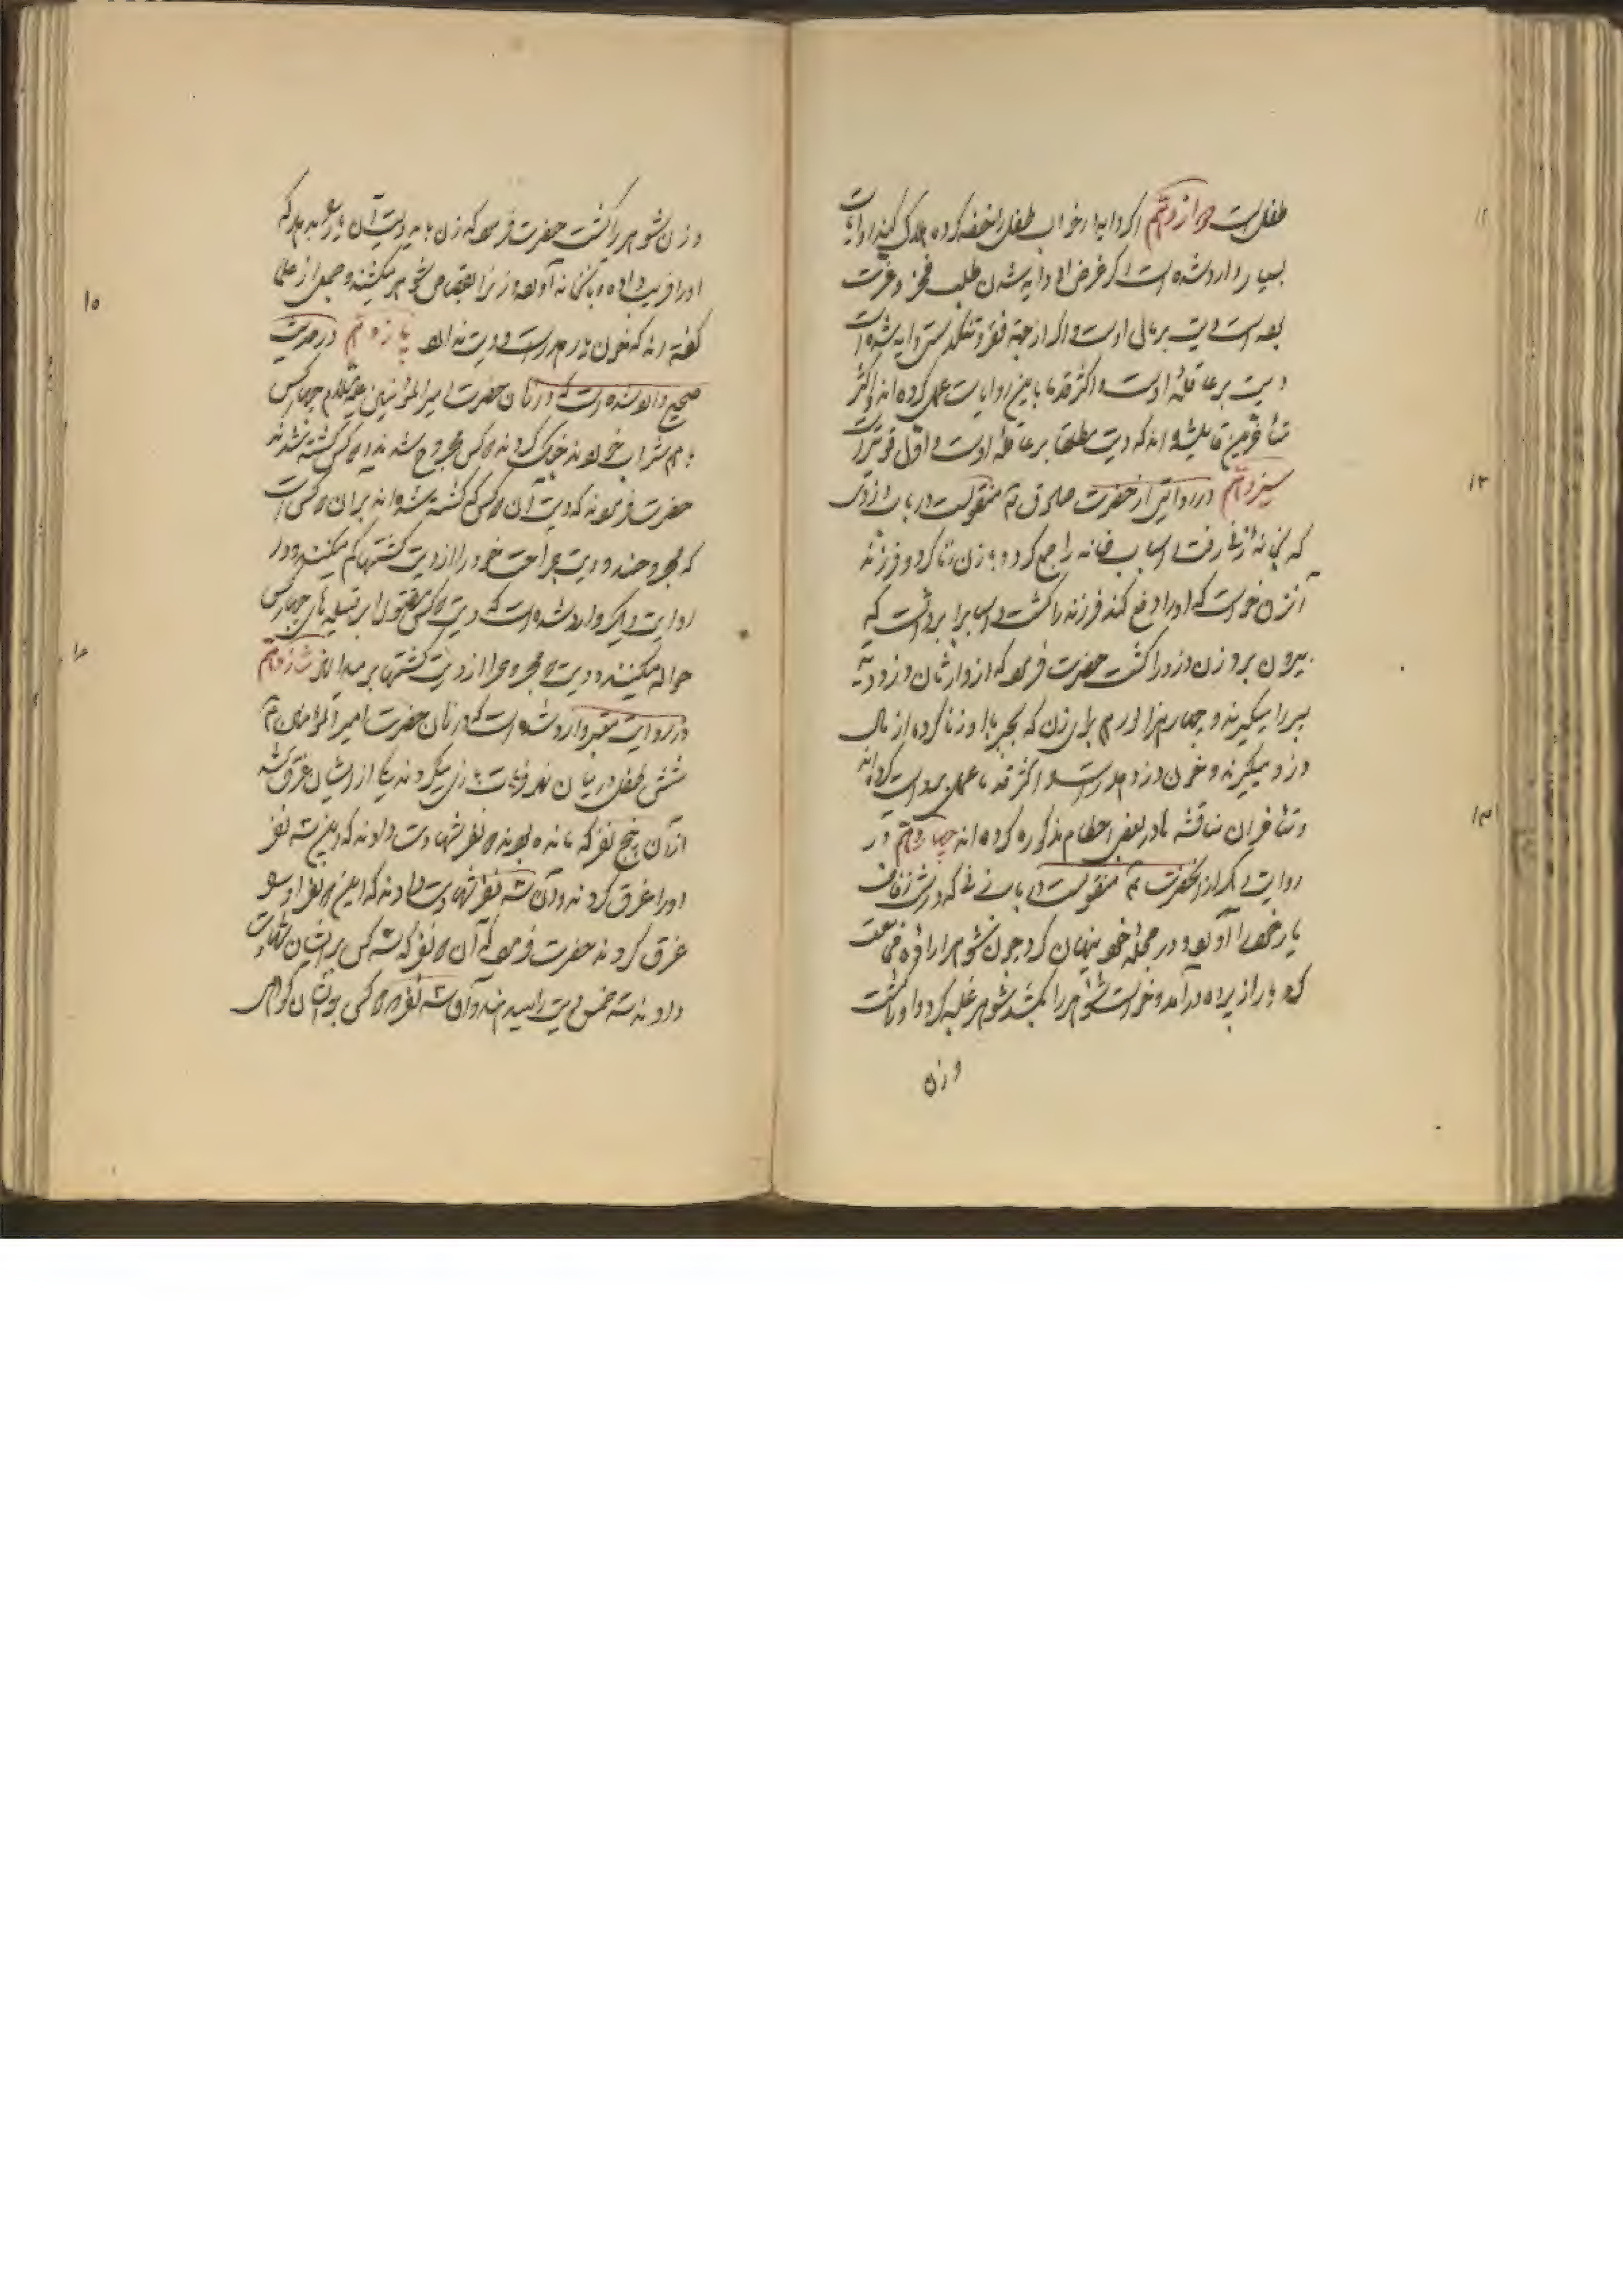 طفل است دوازدهم اکر دایه در خواب طفل را خفه کرده هلاک کند روایات
بسیار وارد شده است اکر غرض او دایه شدن طلب فخر و عزت
بوده است دیت بر مال اوست و اکر از جهة فقر و تنکدستی دایه شده است
دیت بر عاقلهٔ اوست و اکثر قدما باین روایات عمل کرده اند و اکثر
متأخرین قایل شده اند که دیت مطلقا بر عاقلهٔ اوست و اول قویتر است
سیزدهم در روایتی از حضرت صادق ع منقولست در باب دزدی
که بخانهٔ زنی رفت و اسباب خانه را جمع کرد و با زن زنا کرد و فرزند
آنزن خواست که او را دفع کند فرزند را کشت و اسباب را برداشت که
بیرون برود زن دزد را کشت حضرت فرمود که از وارثان دزد دیهٔ
پسر را میکیرند و چهار هزار درهم برای زن که بجبر با او زنا کرده از مال
دزد میکیرند و خون دزد هدر است و اکثر قدما عمل باین روایت کرده اند
و متأخران مناقشه ها در بعض احکام مذکوره کرده اند چهاردهم در
روایت دیکر از آنحضرت ع منقولست در باب زنی که در شب زفاف
یار خود را آورد و در حجلهٔ خود پنهان کرد چون شوهر ارادهٔ مقاربت
کرد یار از پرده درآمد و خواست شوهر را بکشد شوهر غلبه کرد و او را کشت
و زن
و زن شوهر را کشت حضرت فرمود که زن باید دیت آن یار را بدهد که
او را فریب داده و بآنخانه آورده و زن را بقصاص شوهر میکشند و جمعی از علما
کفته اند که خون یار هدر است و دیت ندارد پانزدهم در حدیث
صحیح وارد شده است که در زمان حضرت امیرالمؤمنین علیه السلام چهار کس
با هم شراب خوردند و جنک کردند دو کس مجروح شدند و دو کس کشته شدند
حضرت فرمودند که دیت آن دو کس که کشته شده اند بر آن دو کس است
که مجروحند و دیت جراحت خود را از دیت کشتها کم میکنند و در
روایت دیکر وارد شده است که دیت دو کس مقتول را بر قبیله های چهار کس
حواله میکنند و دیت دو مجروح را از دیت کشتها بر میدارند شانزدهم
در روایت معتبر وارد شده است که در زمان حضرت امیر المؤمنین ع
شش طفل در میان نهر فرات بازی میکردند یکی از ایشان غرق شد
از آن پنج نفر که مانده بودند دو نفر شهادت دادند که این سه نفر
او را غرق کردند و آن سه نفر شهادت دادند که این دو نفر او را
غرق کردند حضرت فرمود که آن دو نفر که سه کس بر ایشان شهادت
دادند سه خمس دیت را میدهند و آن سه نفر که دو کس بر ایشان کواهی